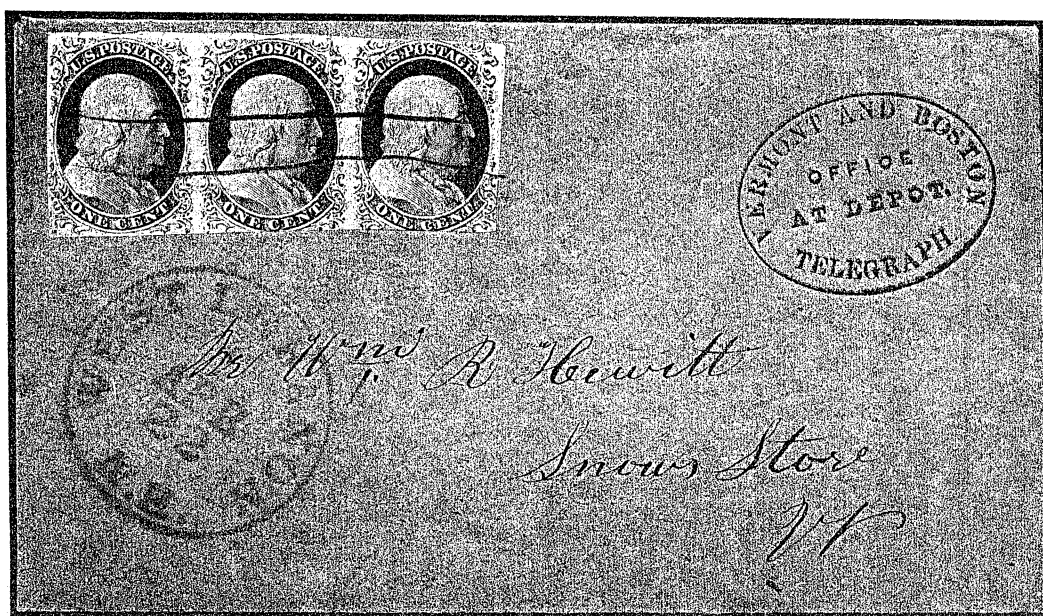 U.S. POSTAGE. U.S. POSTAGE. U.S. POSTAGE.
ONE CENT. ONE CENT. ONE CENT.
VERMONT AND BOSTON
OFFICE
AT DEPOT.
TELEGRAPH
Mr Wm R Hewitt
Snows Store
Vt